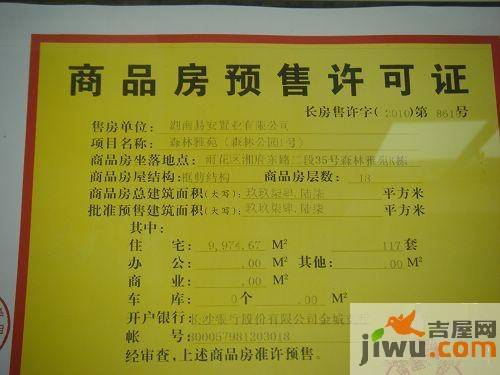 商品房预售许可证
长房售许字(2010)第 861号
售房单位: 湖南易安置业有限公司
项目名称: 森林雅苑(森林公园1号)
商品房坐落地点: 雨花区湘府东路二段35号森林雅苑K栋
商品房屋结构: 框剪结构 商品房层数: 18
商品房总建筑面积(大写): 玖玖柒肆.陆柒 平方米
批准预售建筑面积(大写): 玖玖柒肆.陆柒 平方米
其中:
住 宅: 9,974.67 M² 117 套
办 公: .00 M² 其他: .00 M²
商 业: .00 M²
车 库: 0 个 .00 M²
开户银行: 长沙银行股份有限公司金城支行
帐 号: 800057981203018
经审查,上述商品房准许预售。
吉屋网
jiwu.com